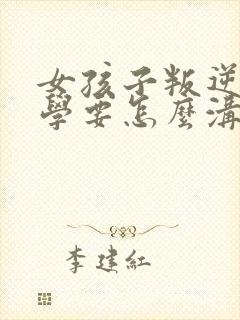 女孩子叛逆
學要怎麼溝
李建紅